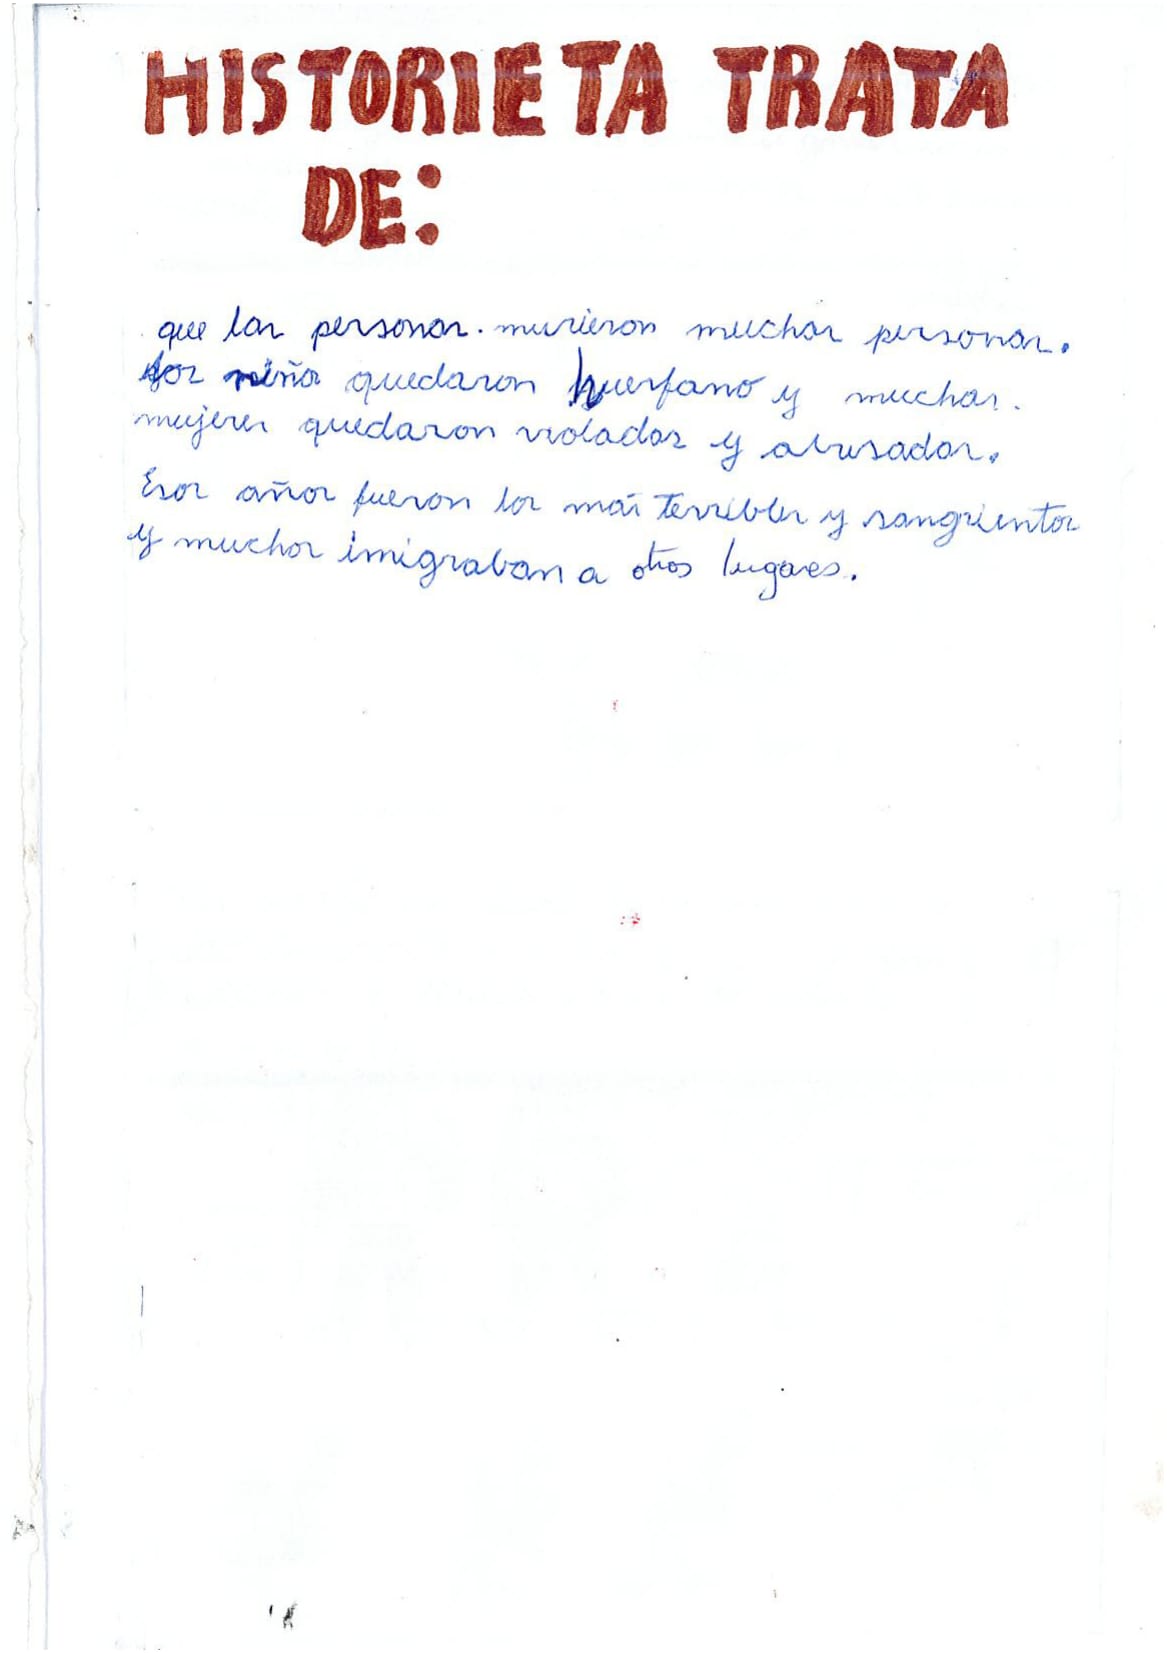 HISTORIETA TRATA
DE:
que las personas. murieron muchas personas.
los niños quedaron huerfano y muchas.
mujeres quedaron violadas y abusadas.
Esos años fueron los más terribles y sangrientos
y muchos imigraban a otros lugares.